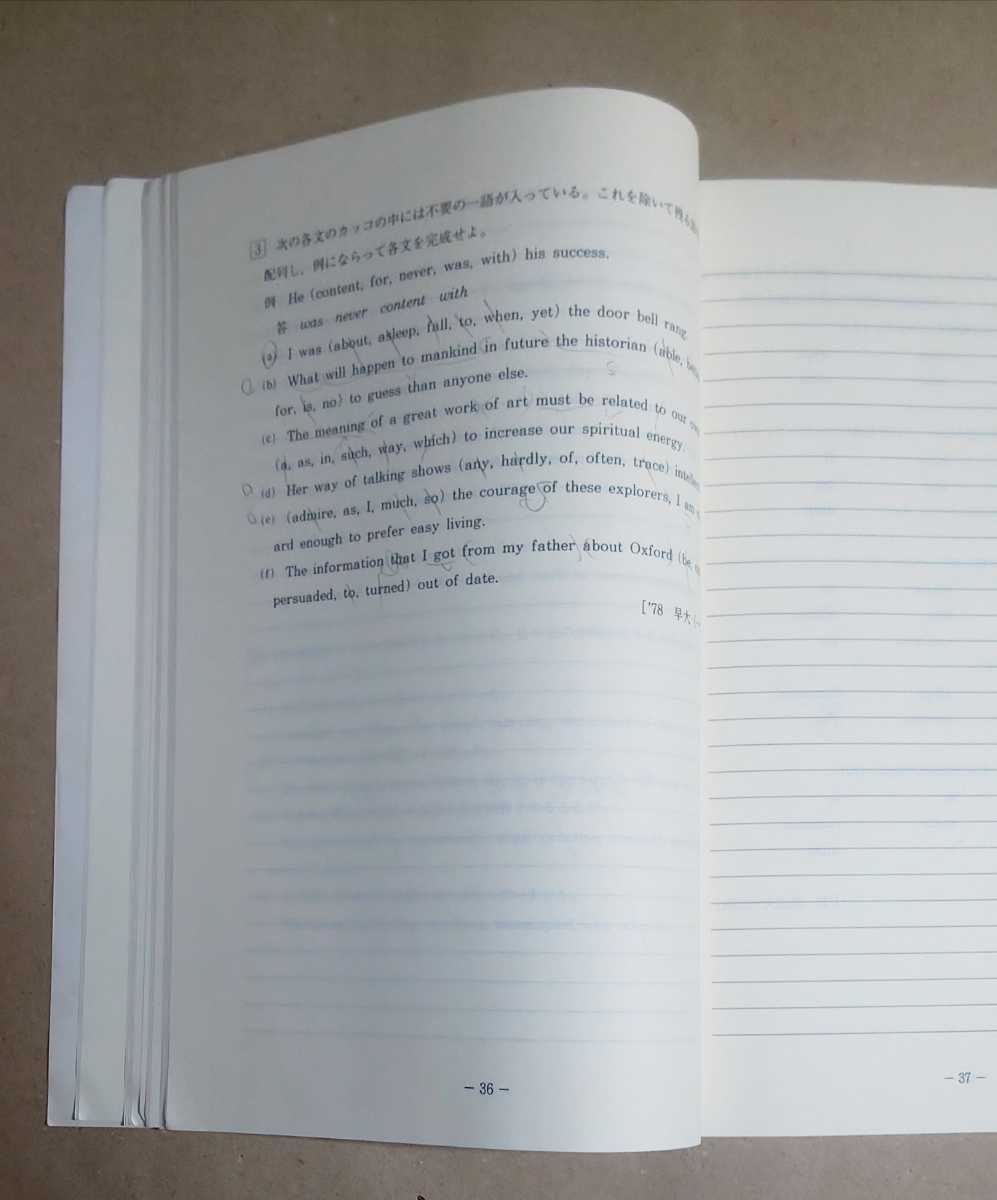 3 次の各文のカッコの中には不要の一語が入っている。これを除いて残る
配列し，例にならって各文を完成せよ。
例 He (content, for, never, was, with) his success.
答 was never content with
(a) I was (about, asleep, fall, to, when, yet) the door bell rang.
(b) What will happen to mankind in future the historian (able,
for, is, no) to guess than anyone else.
(c) The meaning of a great work of art must be related to our
(a, as, in, such, way, which) to increase our spiritual energy.
(d) Her way of talking shows (any, hardly, of, often, trace)
(e) (admire, as, I, much, so) the courage of these explorers, I am
ard enough to prefer easy living.
(f) The information that I got from my father about Oxford (be,
persuaded, to, turned) out of date.
['78 早大
— 36 —
— 37 —